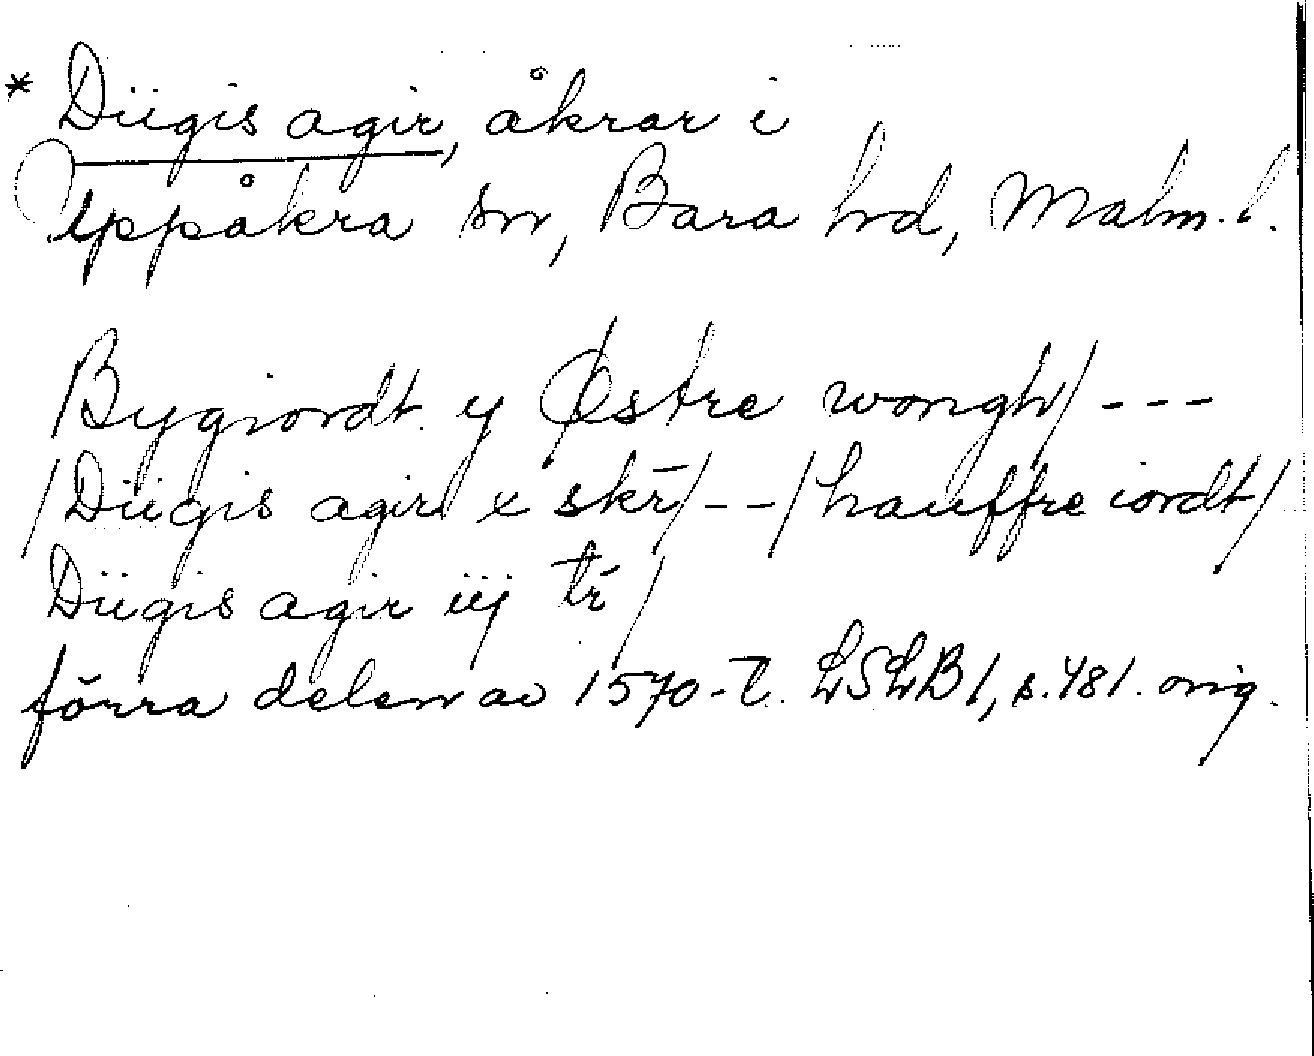 * Diigis agir, åkrar i
Uppåkra sn, Bara hd, Malm. l.
Bygiordt y Østre wongh/ ---
/Diigis agir x skr̄/ -- /hauffre iordt/
Diigis agir iij tr̄/
förra delen av 1570-t. LSLB 1, s. 481. orig.